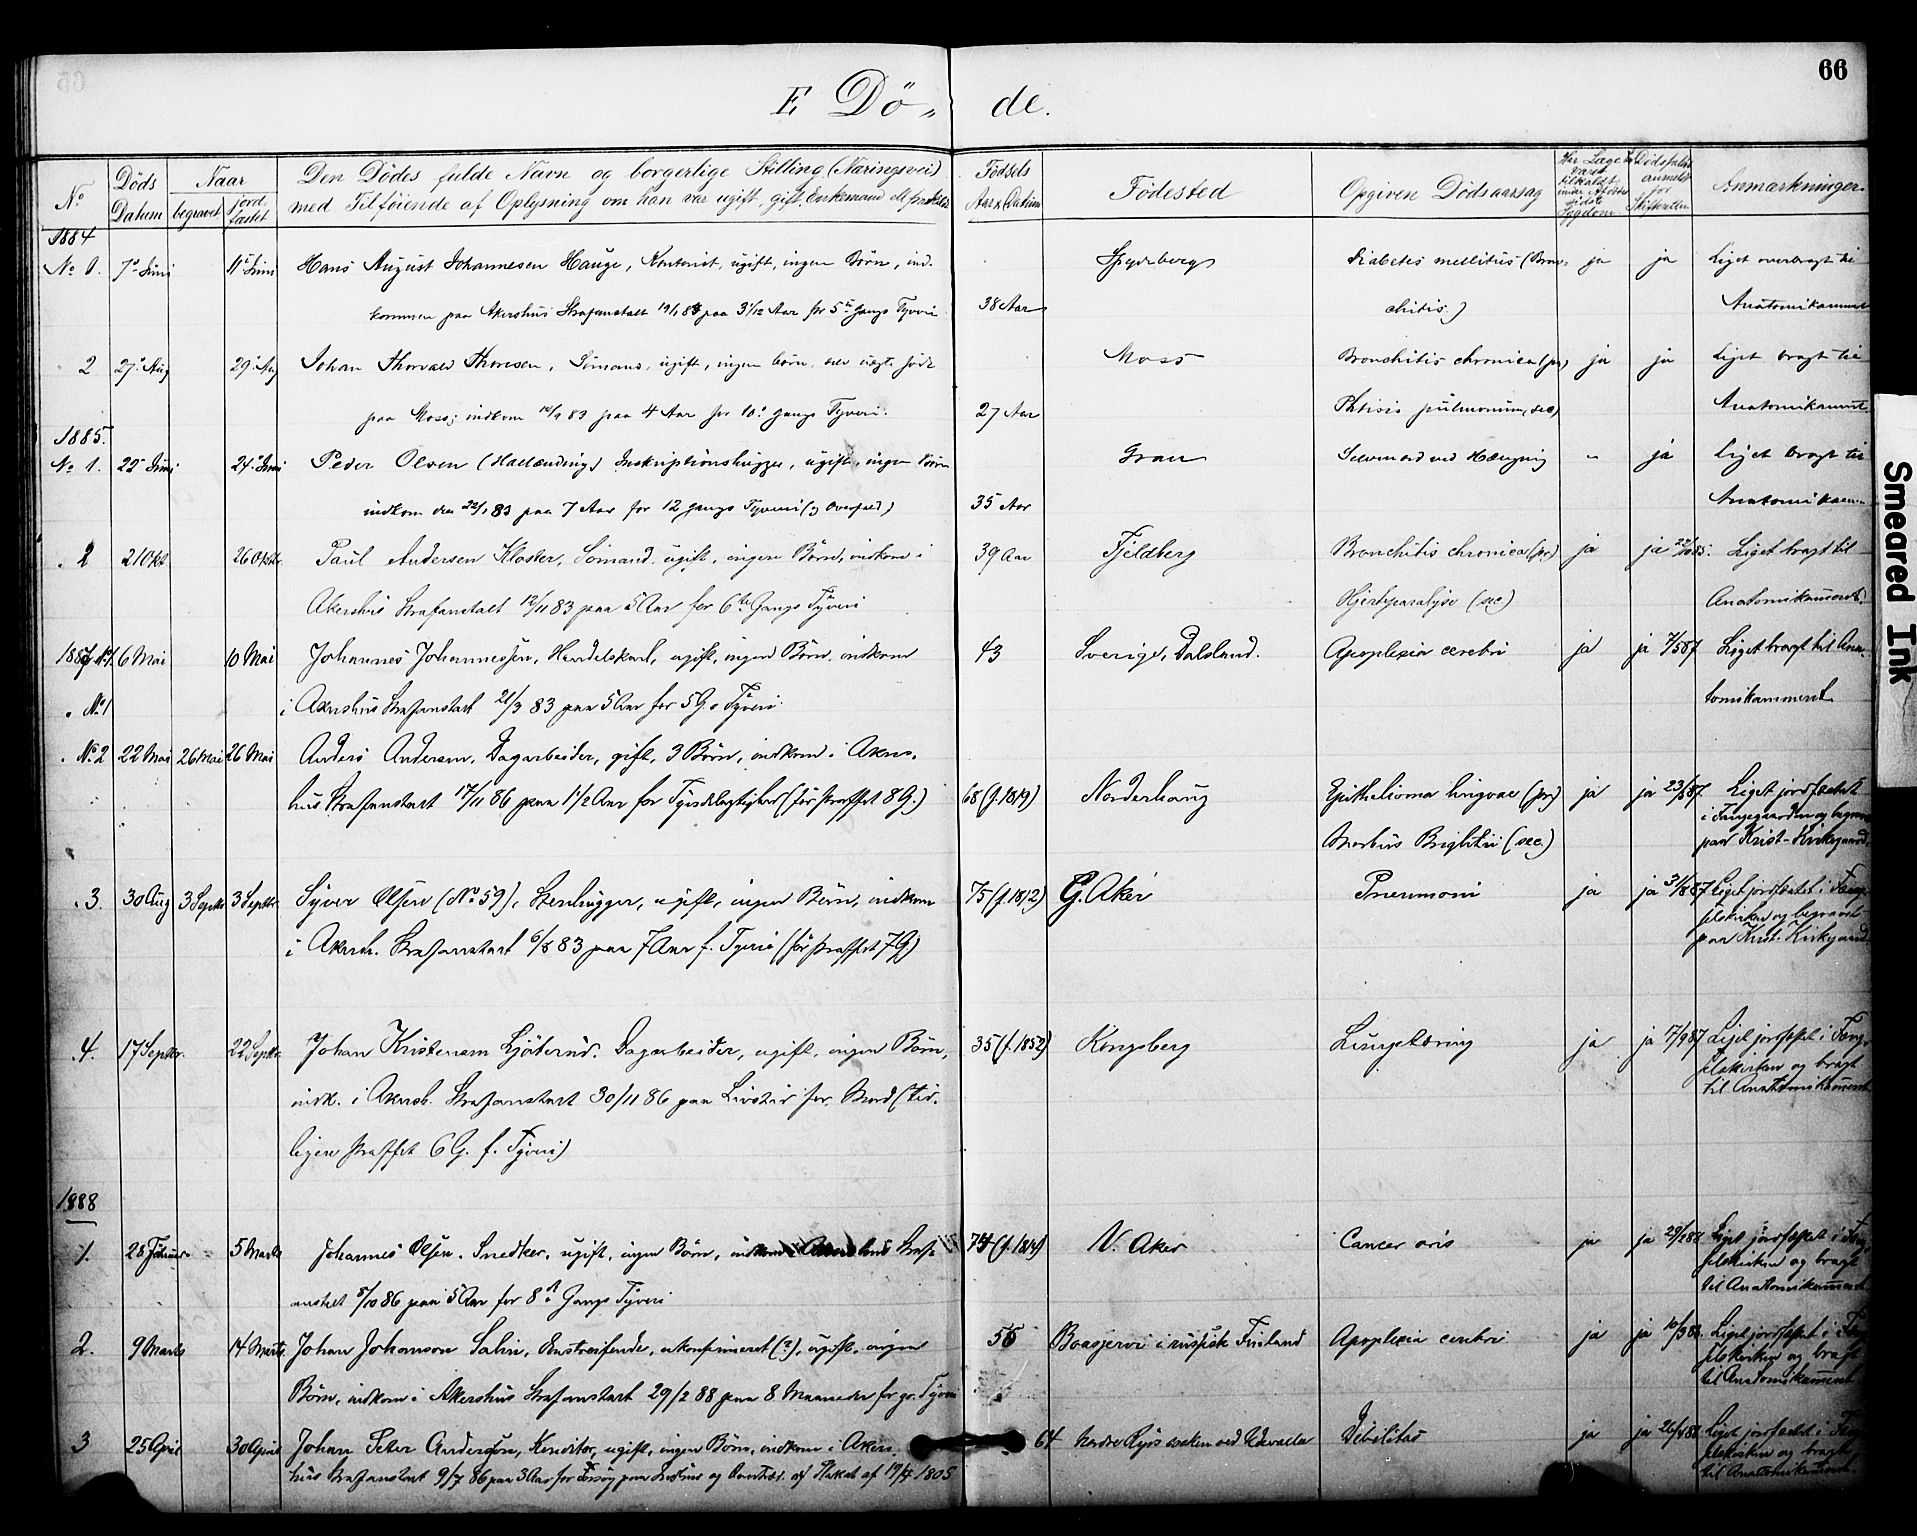 66
E Dö„ de.
No
Döds Datum
Naar
begravet
jordfæstet
Den Dödes fulde Navn og borgerlige Stilling (Næringsvei)
med Tilföiende af Oplysning om han var ugift, gift, Enkemand
Födsels Aar & Datum
Födested
Opgiven Dödsaarsag
Anmærkninger
1884
No 1. 7de Juni 11te Juni Hans August Johannesen Hauge, Kontorist, ugift, ingen Börn, ind- Spydeberg Diabetes mellitus (Bron- ja ja Liget overbragt til
kommen paa Akershus Strafanstalt paa 3 1/12 Aar for 5te Gangs Tyveri 38 Aar chitis) Anatomikammeret
2 27. Aug 29. Aug Johan Thorvald Thoresen, Sömand, ugift, ingen börn, Moss Bronchitis chronica (pr) ja ja Liget bragt til
paa Moss; indkom paa 4 Aar for 10. Gangs Tyveri. 27 Aar Phtisis pulmonum (sec) Anatomikammeret
1885.
No 1. 22 Juni 24 Juni Peder Olsen (Hallænding) Inskriptionshugger, ugift, ingen Börn Gran Selvmord ved Hængning " ja Liget bragt til
indkom den 22/1 83 paa 7 Aar for 12 Gangs Tyveri (og Overfald) 35 Aar Anatomikam-
. 2 21 Okt 26 Oktbr. Paul Andersen Kloster, Sömand, ugift, ingen Börn, indkom i 39 Aar Fjeldberg Bronchitis chronica (pr) ja ja Liget bragt til
Akershus Strafanstalt 12/11 83 paa 5 Aar for 6te Gangs Tyveri Hjerteparalyse (sec) Anatomikammeret.
1887 No 1 6 Mai 10 Mai Johannes Johannessen, Handelskarl, ugift, ingen Börn, indkom 43 Sverige, Dalsland. Apoplexia cerebri ja ja 7/5 87 Liget bragt til Ana-
. No 1 i Akershus Strafanstalt 21/3 83 paa 5 Aar for 5 G. Tyveri. tomikammeret
. No 2 22 Mai 26 Mai 26 Mai Anders Andersen, Dagarbeider, gift, 3 Börn, indkom i Akers-
hus Strafanstalt 17/11 86 paa 1 1/2 Aar for Tyvsdelagtighed (för straffet 8 G.) 68 (f. 1819) Norderhaug Epithelioma lingvae (pr) ja ja 23/5 87. Liget jordfæstet
i Fangegaarden og begravet
Morbus Brightii (sec.) paa Krist. Kirkegaard.
. 3. 30 Aug 3 Septbr 3 Septbr. Syver Olsen (No 59), Stenhugger, ugift, ingen Börn, indkom 75 (f. 1812) G. Aker Pneumoni ja ja 31/8 87 Liget jordfæstet i Fæng-
selskirken og begravet
i Akersh. Strafanstalt 6/8 83 paa 7 Aar f. Tyveri (för straffet 7 G.) paa Krist. Kirkegaard.
. 4. 17 Septbr. 22 Septbr. Johan Kristensen Ljöterud. Dagarbeider, ugift, ingen Börn, 35 (f. 1852) Kongsberg Lungetæring ja ja 17/9 87 Liget jordfæstet i Fæng-
selskirken og bragt
indk. i Akersh. Strafanstalt 30/11 86 paa Livstid for Mord (tid- til Anatomikammeret
ligere straffet 6 G. f. Tyveri)
1888
1. 28 Februar 5 Marts Johannes Olsen. Snedker, ugift, ingen Börn, indkom i Akershus Straf- 74 (f. 1814) V. Aker Cancer oris ja ja 29/2 88 Liget jordfæstet i Fæng-
selskirken og bragt
anstalt 5/10 86 paa 5 Aar for 8de Gangs Tyveri til Anatomikammeret
2. 9 Marts 14 Marts. Johan Johanson Salin, Omstreifende, ukonfirmeret (?), ugift, ingen 55 Boasjervi i russisk Finland Apoplexia cerebri ja ja 10/3 88. Liget jordfæstet i Fæng-
selskirken og bragt
Börn, indkom i Akershus Strafanstalt 29/2 88 paa 8 Maaneder for gr. Tyveri til Anatomikammeret
3 25 April 30 April Johan Peter Anderson, Konditor, ugift, ingen Börn, indkom i Akers- 64 ved Udevalla Debilitas ja ja 26/4 88 Liget jordfæstet i Fæng-
selskirken og bragt
hus Strafanstalt 9/7 86 paa 3 Aar for Forsög paa af Plakat af 1805 til Anatomikammeret.
Smeared Ink